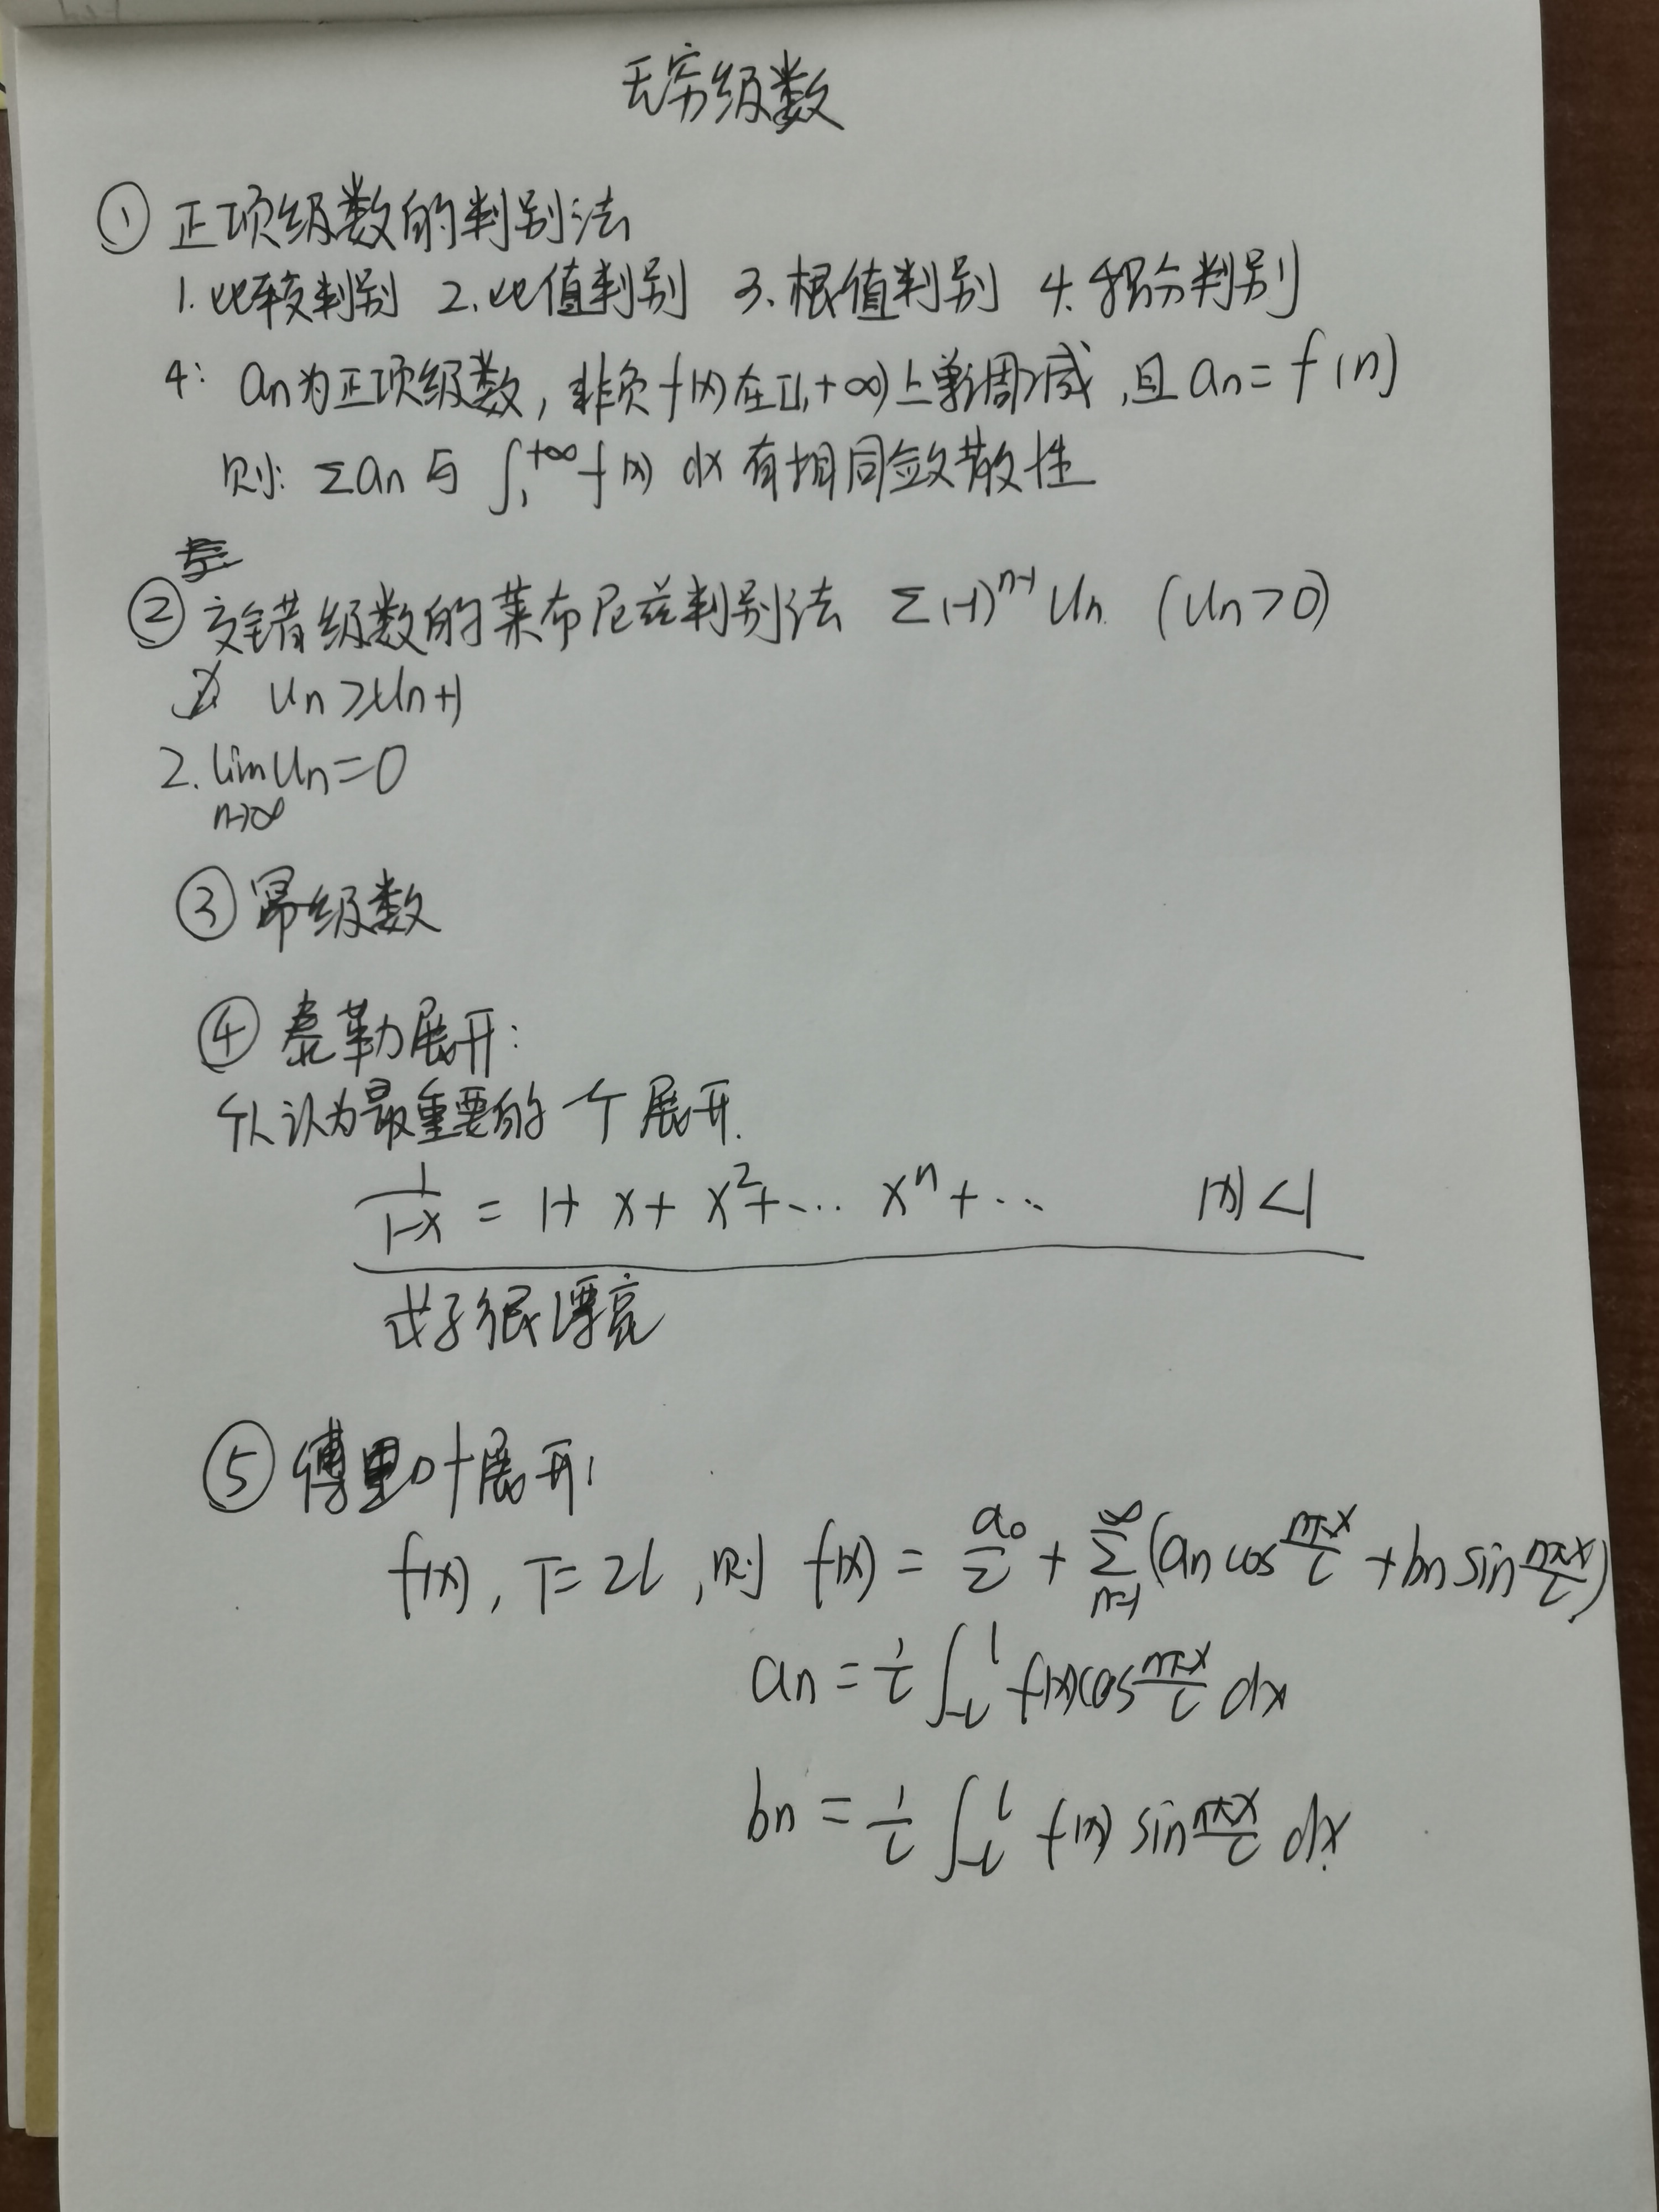 无穷级数
① 正项级数的判别法
1. 比较判别 2. 比值判别 3. 根值判别 4. 积分判别
4: an为正项级数, 非负f(x)在[1,+∞)上单调减, 且an=f(n)
则: Σan与∫₁^{+∞} f(x) dx有相同敛散性
② 交错级数的莱布尼兹判别法 Σ(-1)^{n-1} Un. (Un>0)
Un≥Un+1
2. lim Un=0
n→∞
③ 幂级数
④ 泰勒展开:
个人认为最重要的一个展开.
1/(1-x) = 1+x+x²+... xⁿ+... |x|<1
式子很漂亮
⑤ 傅里叶展开:
f(x), T=2l, 则 f(x) = a₀/2 + Σ_{n=1}^{∞} (an cos nπx/l + bn sin nπx/l)
an = 1/l ∫_{-l}^{l} f(x)cos nπx/l dx
bn = 1/l ∫_{-l}^{l} f(x) sin nπx/l dx.